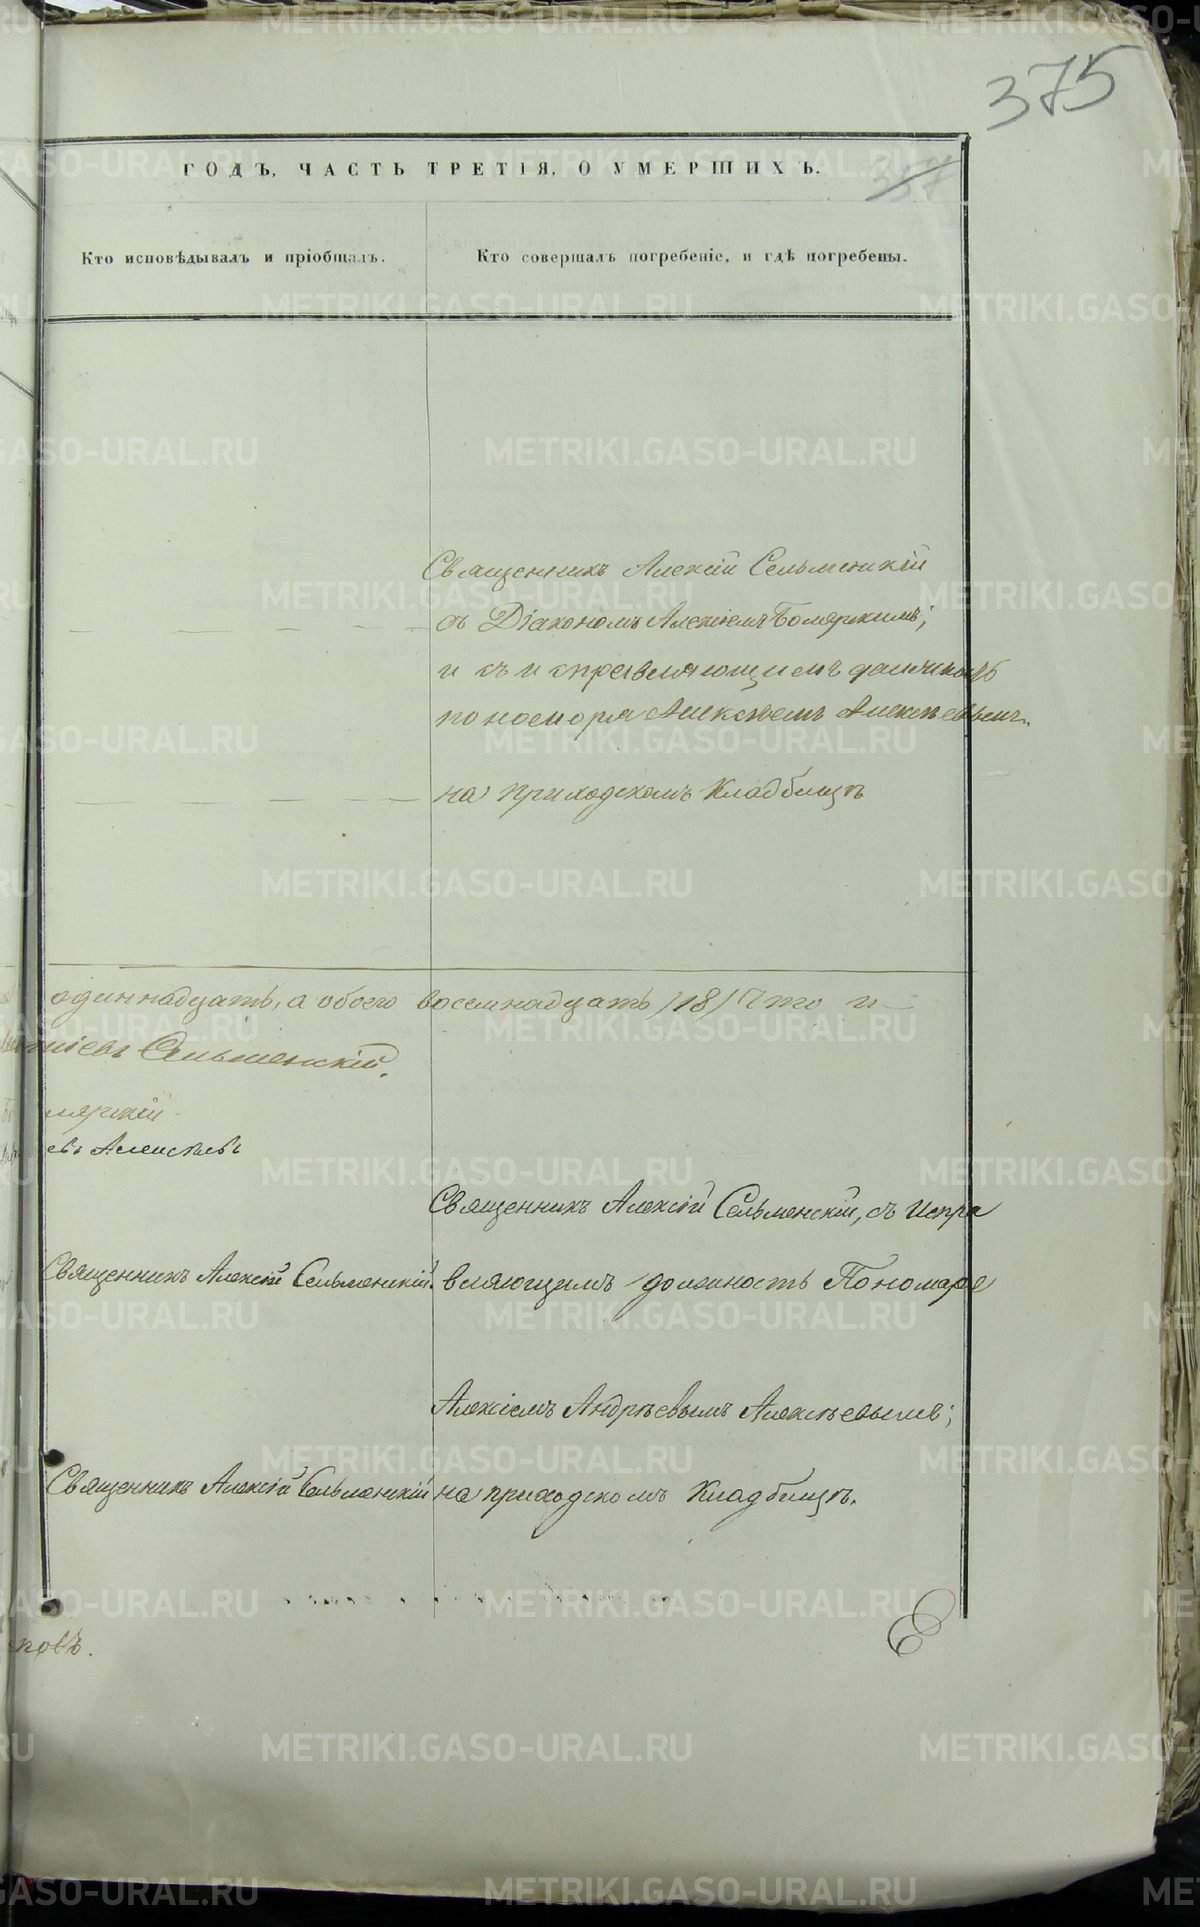 375
ГОДЪ, ЧАСТЬ ТРЕТІЯ, О УМЕРШИХЪ.
357
Кто исповѣдывалъ и пріобщалъ.
Кто совершалъ погребеніе, и гдѣ погребены.
Священникъ Алексій Сельменскій
съ Діакономъ Алексіемъ Боляркимъ;
и съ исправляющимъ должность
пономаря Алексѣемъ Алексѣевымъ
на приходскомъ кладбищѣ
одиннадцать, а обоего восемнадцать /18/ Что и
Сельменскій.
лярскій
евъ Алексѣевъ
Священникъ Алексій Сельменскій, съ испра
Священникъ Алексій Сельменскій.
вляющимъ должность Пономаря
Алексіемъ Андрѣевымъ Алексѣевымъ;
Священникъ Алексій Сельменскій
на приходскомъ кладбищѣ.
повъ.
METRIKI.GASO-URAL.RU